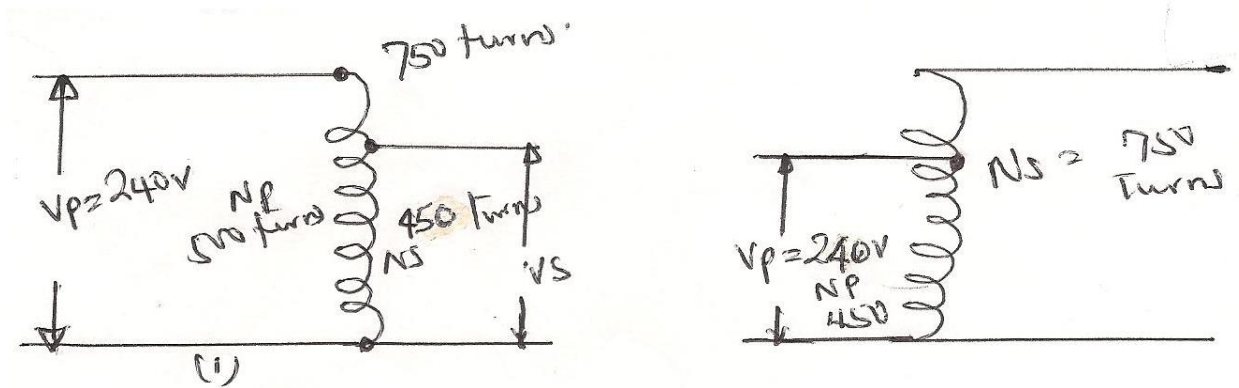 750 turns
Vp=240v
NP
500 turns
450 Turns
NS
VS
(i)
Ns = 750
Turns
Vp=240v
NP
450